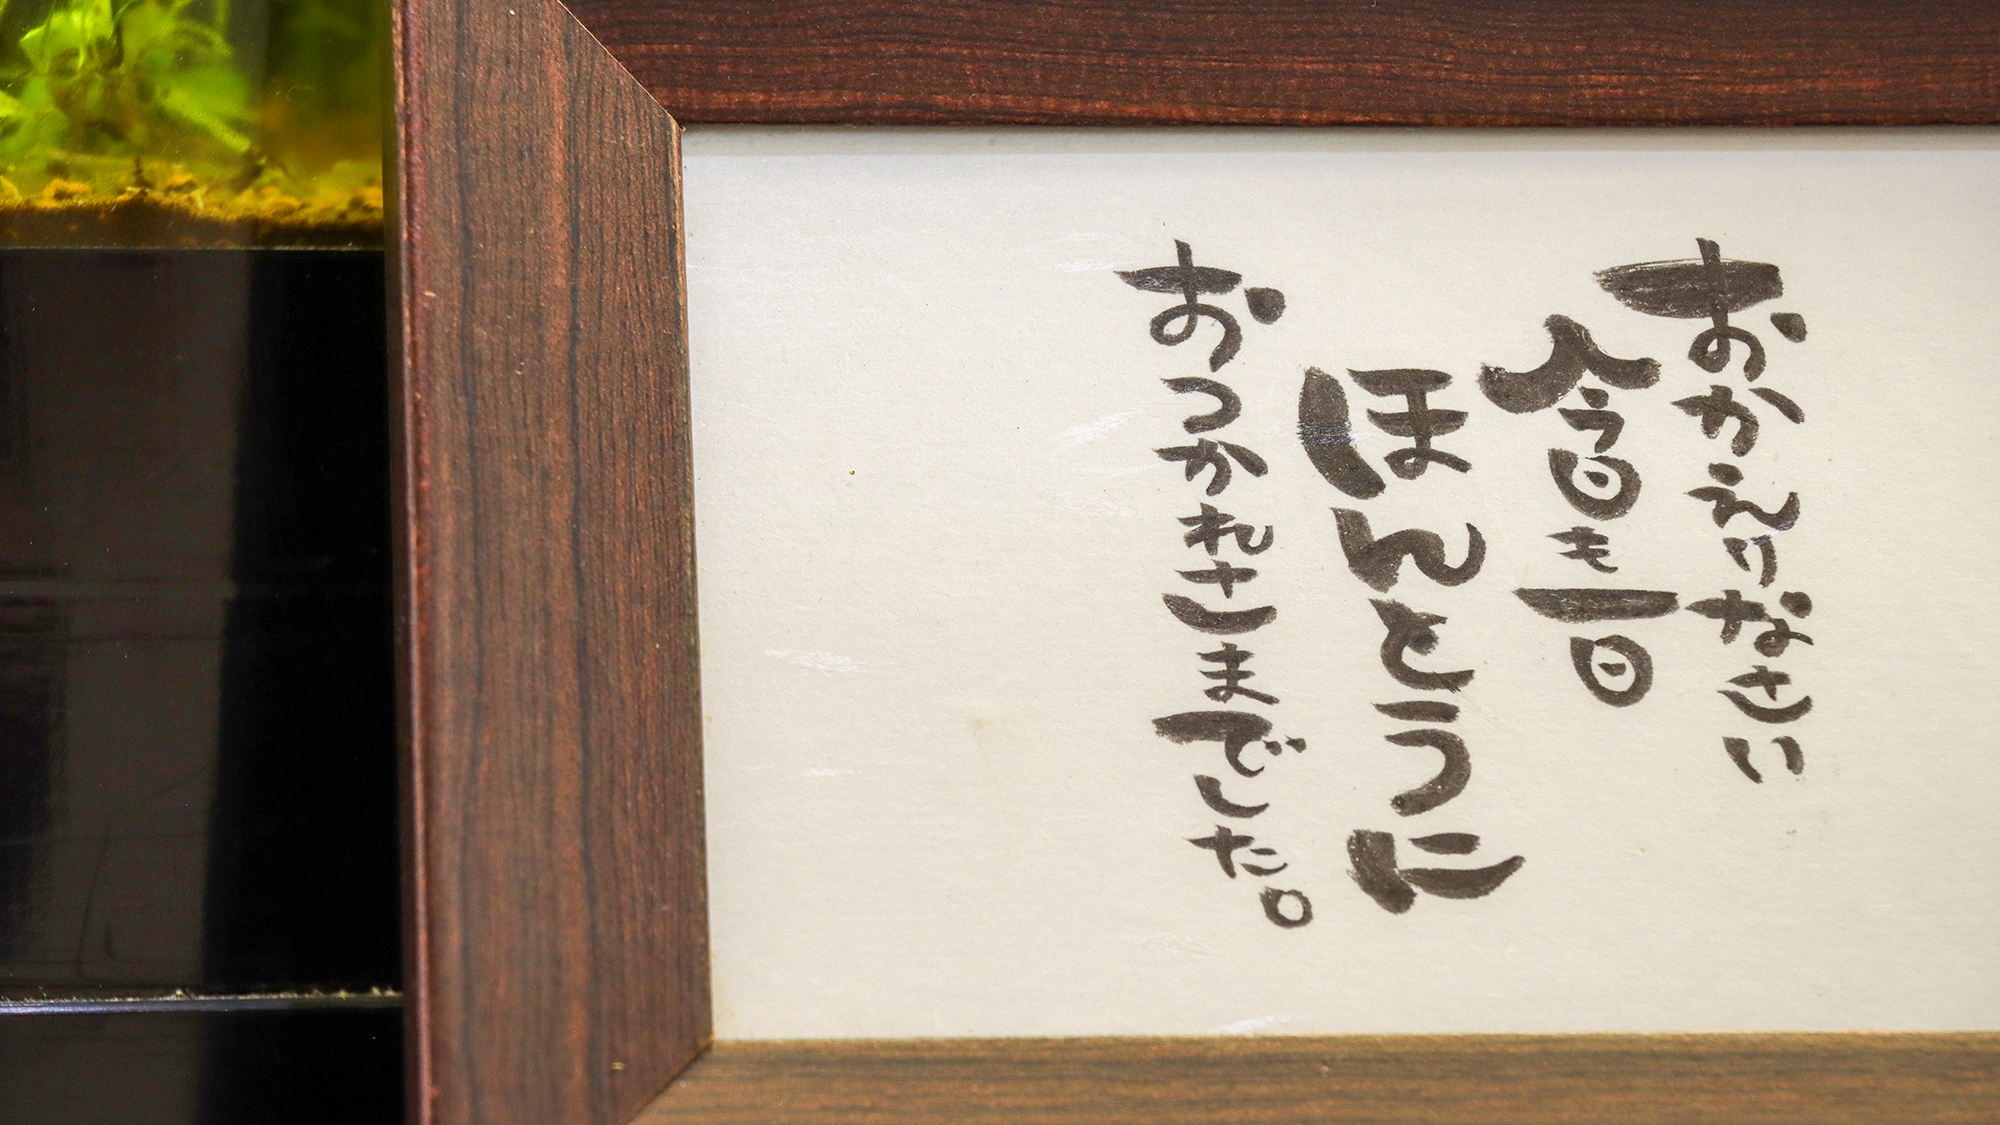 おかえりなさい
今日も一日
ほんとうに
おつかれさまでした。